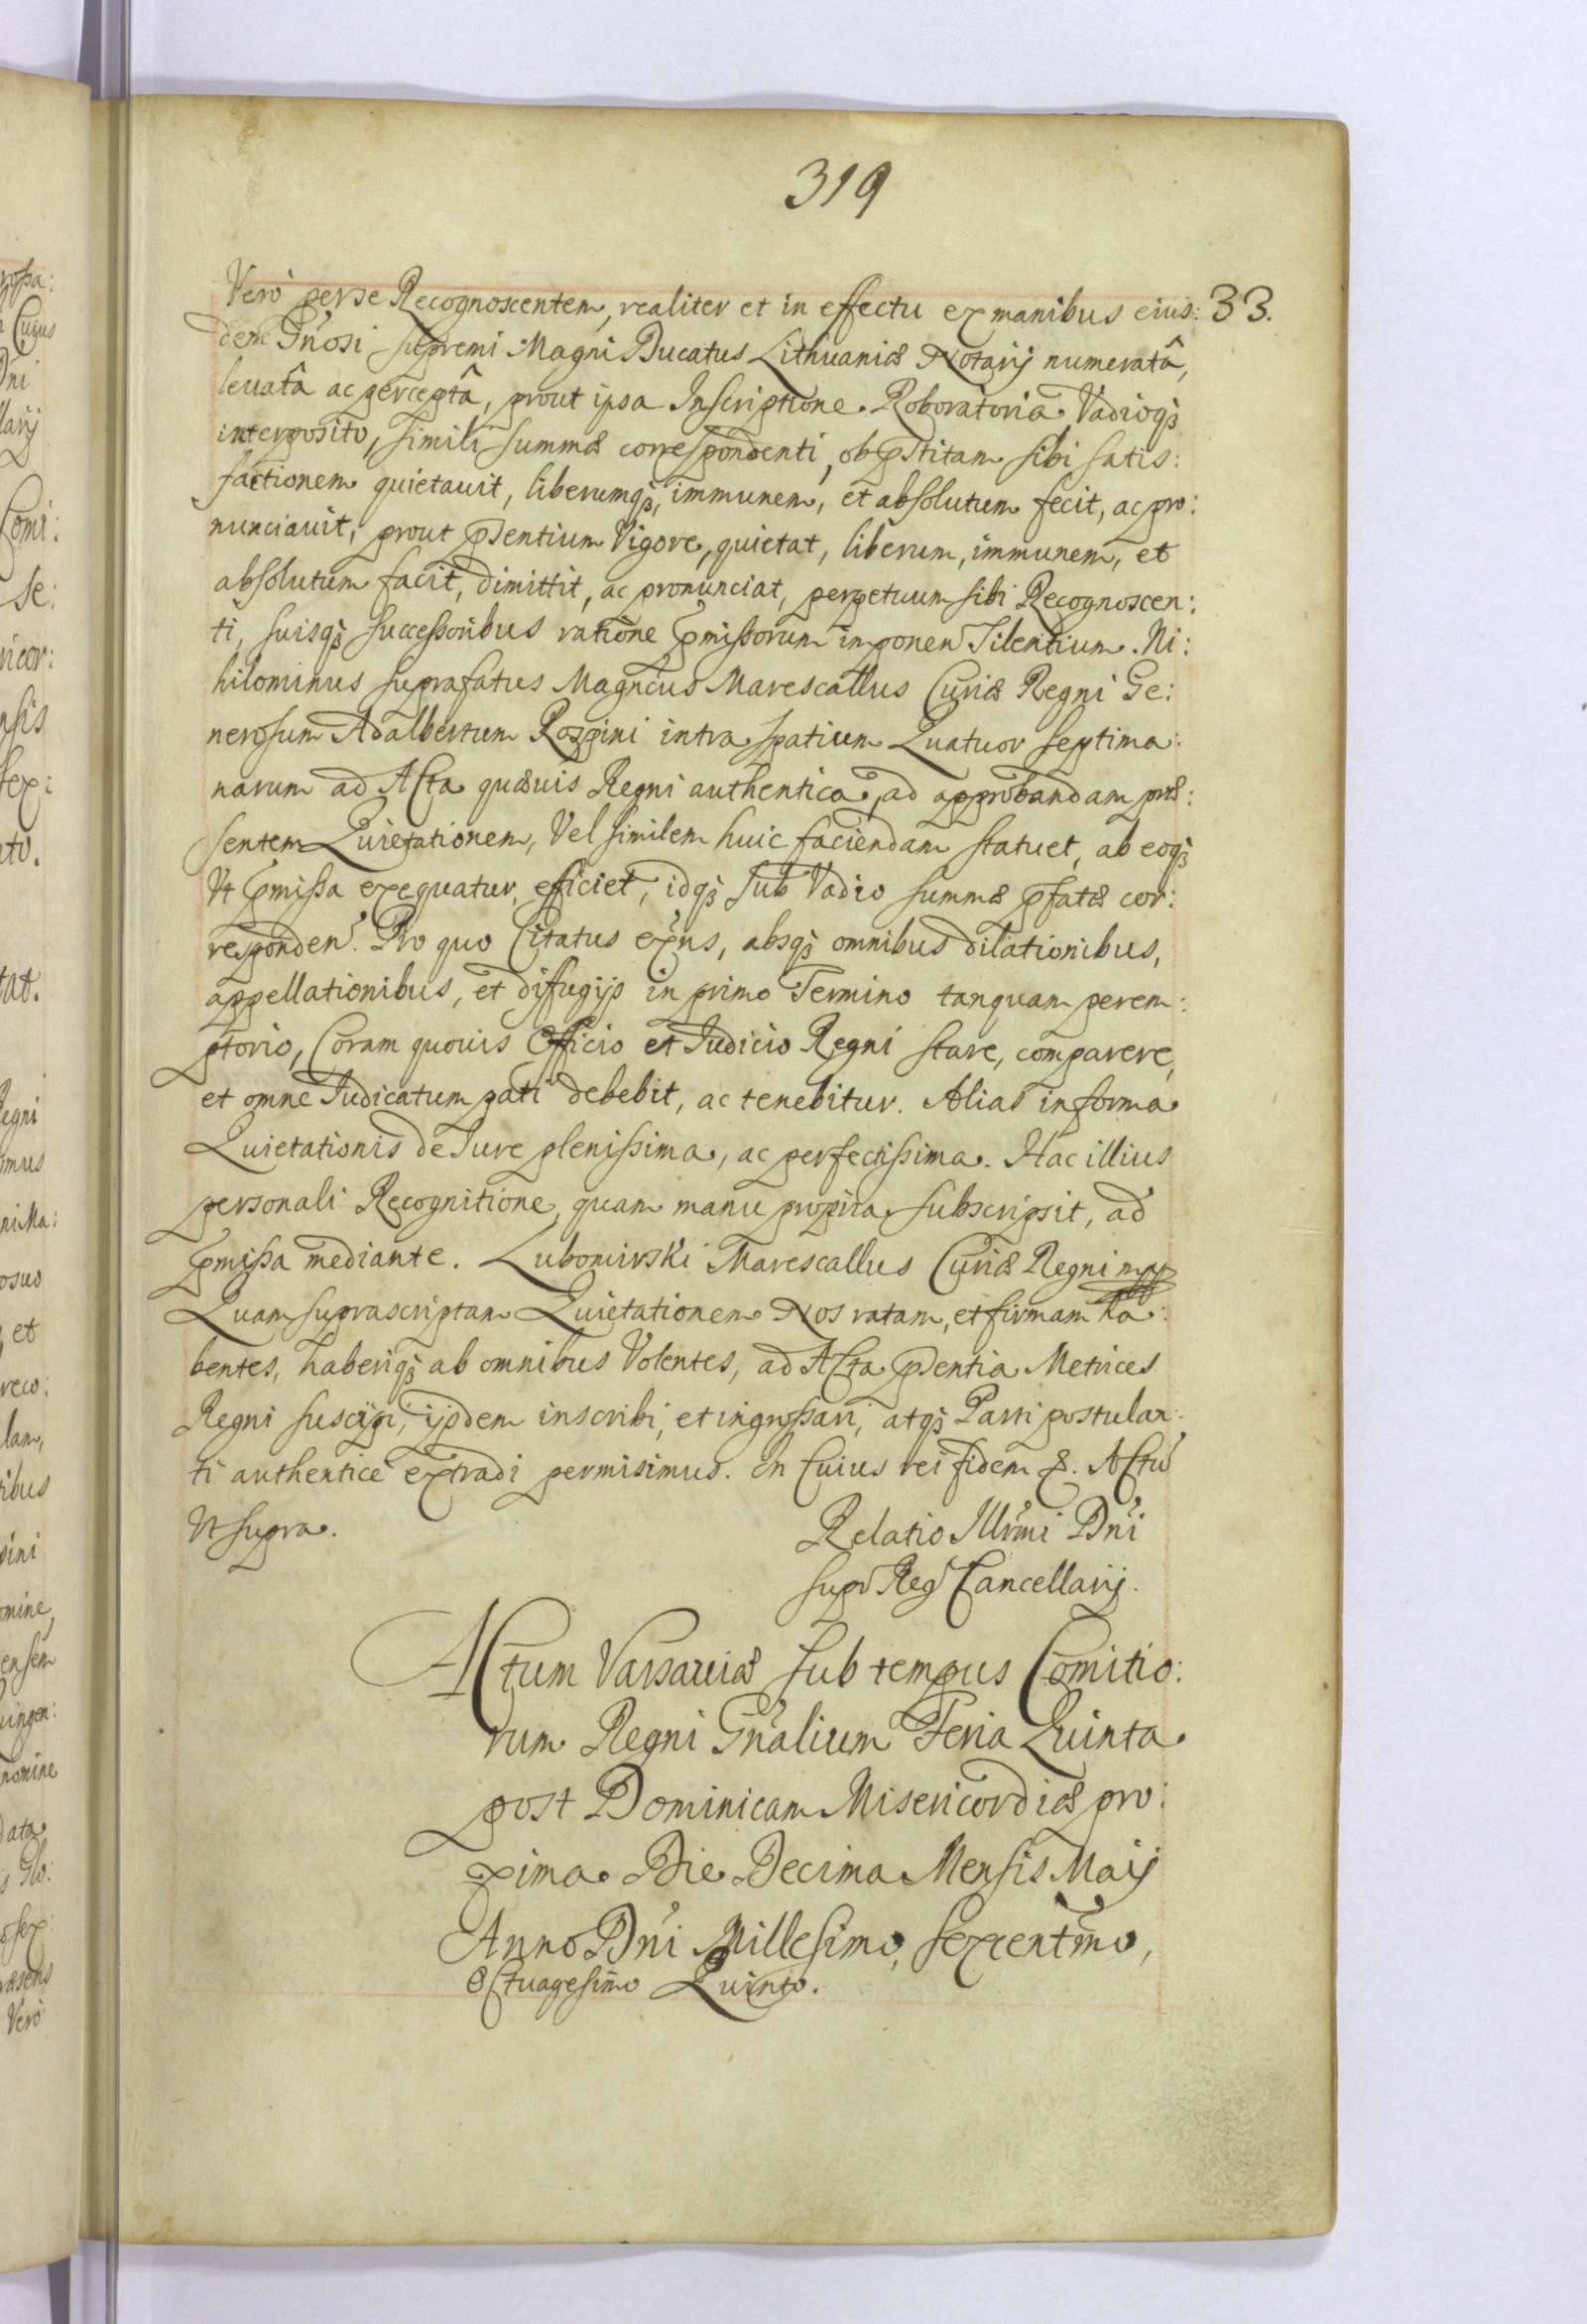 319
33.
Verò per se Recognoscentem, realiter et in effectu ex manibus eius:
dem Gnosi supremi Magni Ducatus Lithuaniæ Notarij numeratâ,
leuatâ ac perceptâ, prout ipsa Inscriptione Roboratoria Vadioq3
interposito, simili summæ correspondenti, ob pstitam sibi satis:
factionem quietauit, liberumq3, immunem, et absolutum fecit, ac pro:
nunciauit, prout psentium Vigore, quietat, liberum, immunem, et
absolutum facit, dimittit, ac pronunciat, perpetuum sibi Recognoscen:
ti, suisq3 successoribus ratione pmissorum imponen Silentium. Ni:
hilominus suprafatus Magncus Marescallus Curiæ Regni Ge:
nerosum Adalbertum Rozpini intra spatium Quatuor septima:
narum ad Acta quæuis Regni authentica, ad approbandam præ:
sentem Quietationem, Vel similem huic faciendam statuet, ab eoq3
Vt pmissa exequatur, efficiet, idq3 sub Vadio summæ pfatæ cor:
responden. Pro quo Citatus exns, absq3 omnibus dilationibus,
appellationibus, et diffugijs in primo Termino tanquam perem:
ptorio, Coram quouis Officio et Judicio Regni stare, comparere,
et omne Judicatum pati debebit, ac tenebitur. Alias in forma
Quietationis de Jure plenissima, ac perfectissima. Hac illius
personali Recognitione, quam manu propria subscripsit, ad
pmissa mediante. Lubomirski Marescallus Curiæ Regni mpp
Quam suprascriptam Quietationem Nos ratam, et firmam ha:
bentes, haberiq3 ab omnibus Volentes, ad Acta psentia Metrices
Regni suscipi, ijsdem inscribi, et ingrossari, atq3 Parti postulan:
ti authenticè extradi permisimus. In Cuius rei fidem &. Actu
Vt supra.
Relatio Illrmi Dni
supr Reg Cancellarij.
Actum Varsauiæ sub tempus Comitio:
rum Regni Gnalium Feria Quinta
post Dominicam Misericordiæ pro:
xima Die Decima Mensis Maij
Anno Dni Millesimo, sexcentmo,
Octuagesimo Quinto.